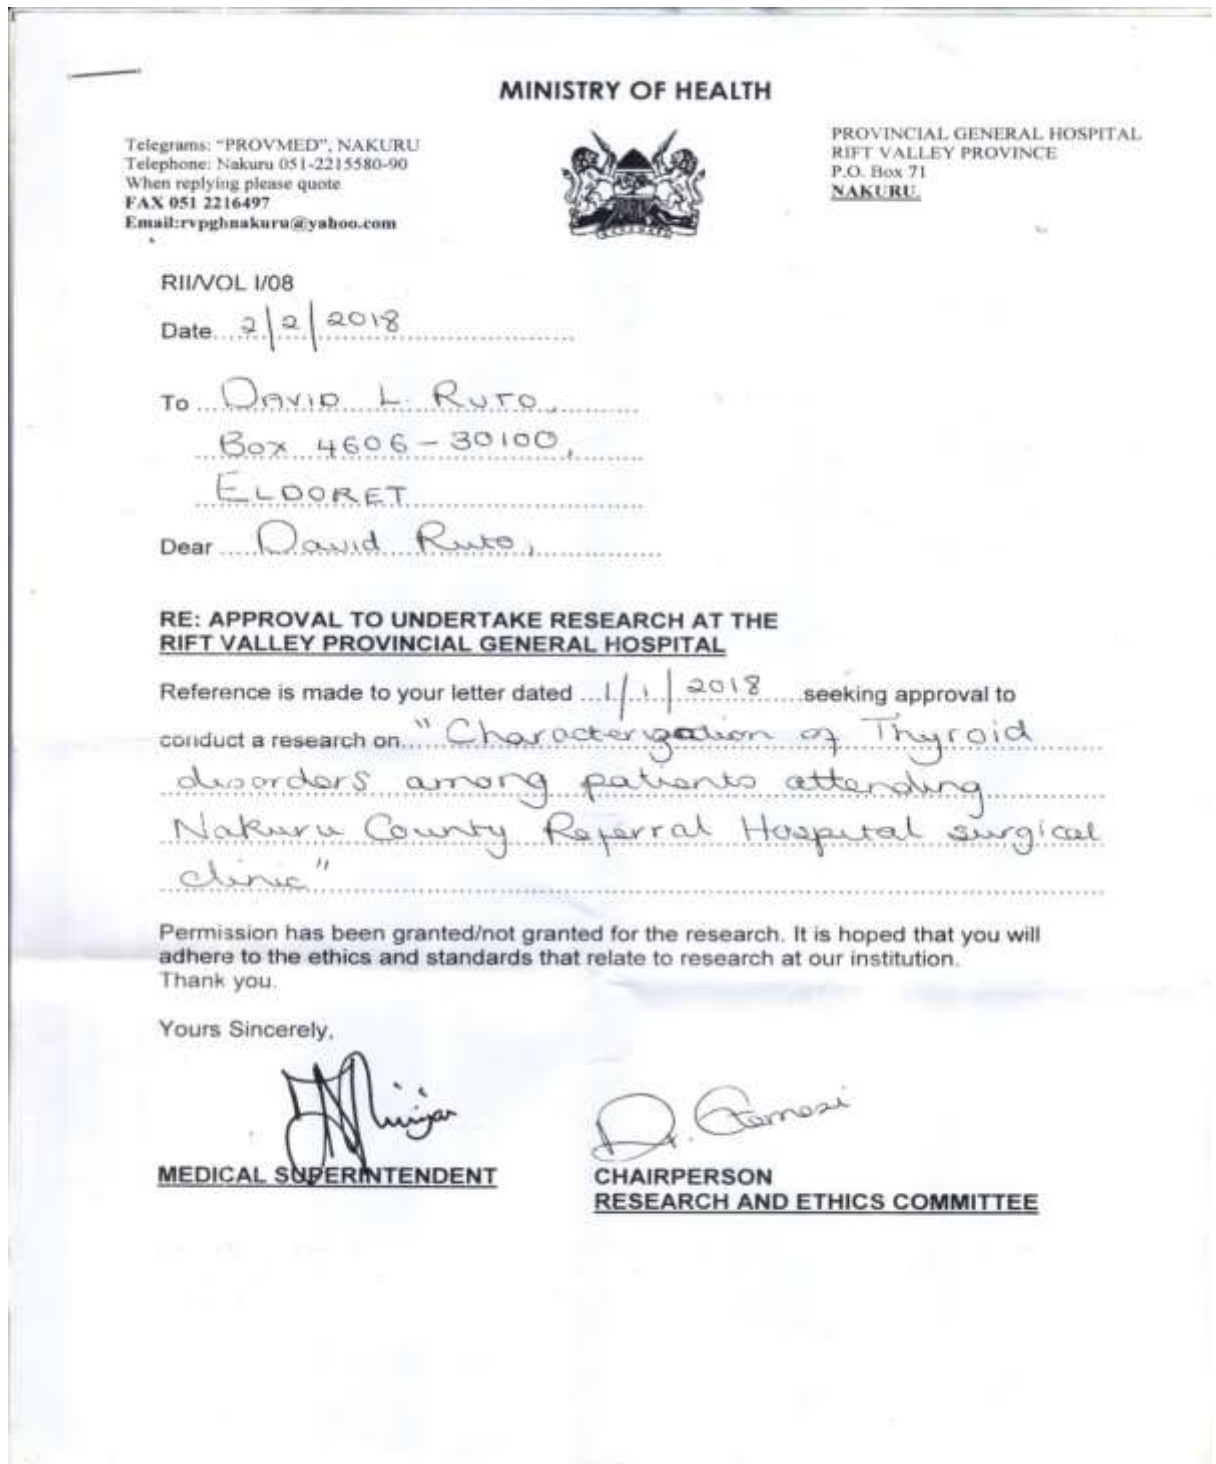 MINISTRY OF HEALTH
Telegrams: "PROVMED", NAKURU
Telephone: Nakuru 051-2215580-90
When replying please quote
FAX 051 2216497
Email:rvpghnakuru@yahoo.com
PROVINCIAL GENERAL HOSPITAL
RIFT VALLEY PROVINCE
P.O. Box 71
NAKURU.
RII/VOL I/08
Date 2/2/2018
To DAVID L. RUTO,
Box 4606-30100,
ELDORET
Dear David Ruto,
RE: APPROVAL TO UNDERTAKE RESEARCH AT THE
RIFT VALLEY PROVINCIAL GENERAL HOSPITAL
Reference is made to your letter dated 1/1/2018 seeking approval to
conduct a research on "Characterization of Thyroid
disorders among patients attending
Nakuru County Referral Hospital surgical
clinic"
Permission has been granted/not granted for the research. It is hoped that you will
adhere to the ethics and standards that relate to research at our institution.
Thank you.
Yours Sincerely,
Dr.
MEDICAL SUPERINTENDENT
CHAIRPERSON
RESEARCH AND ETHICS COMMITTEE